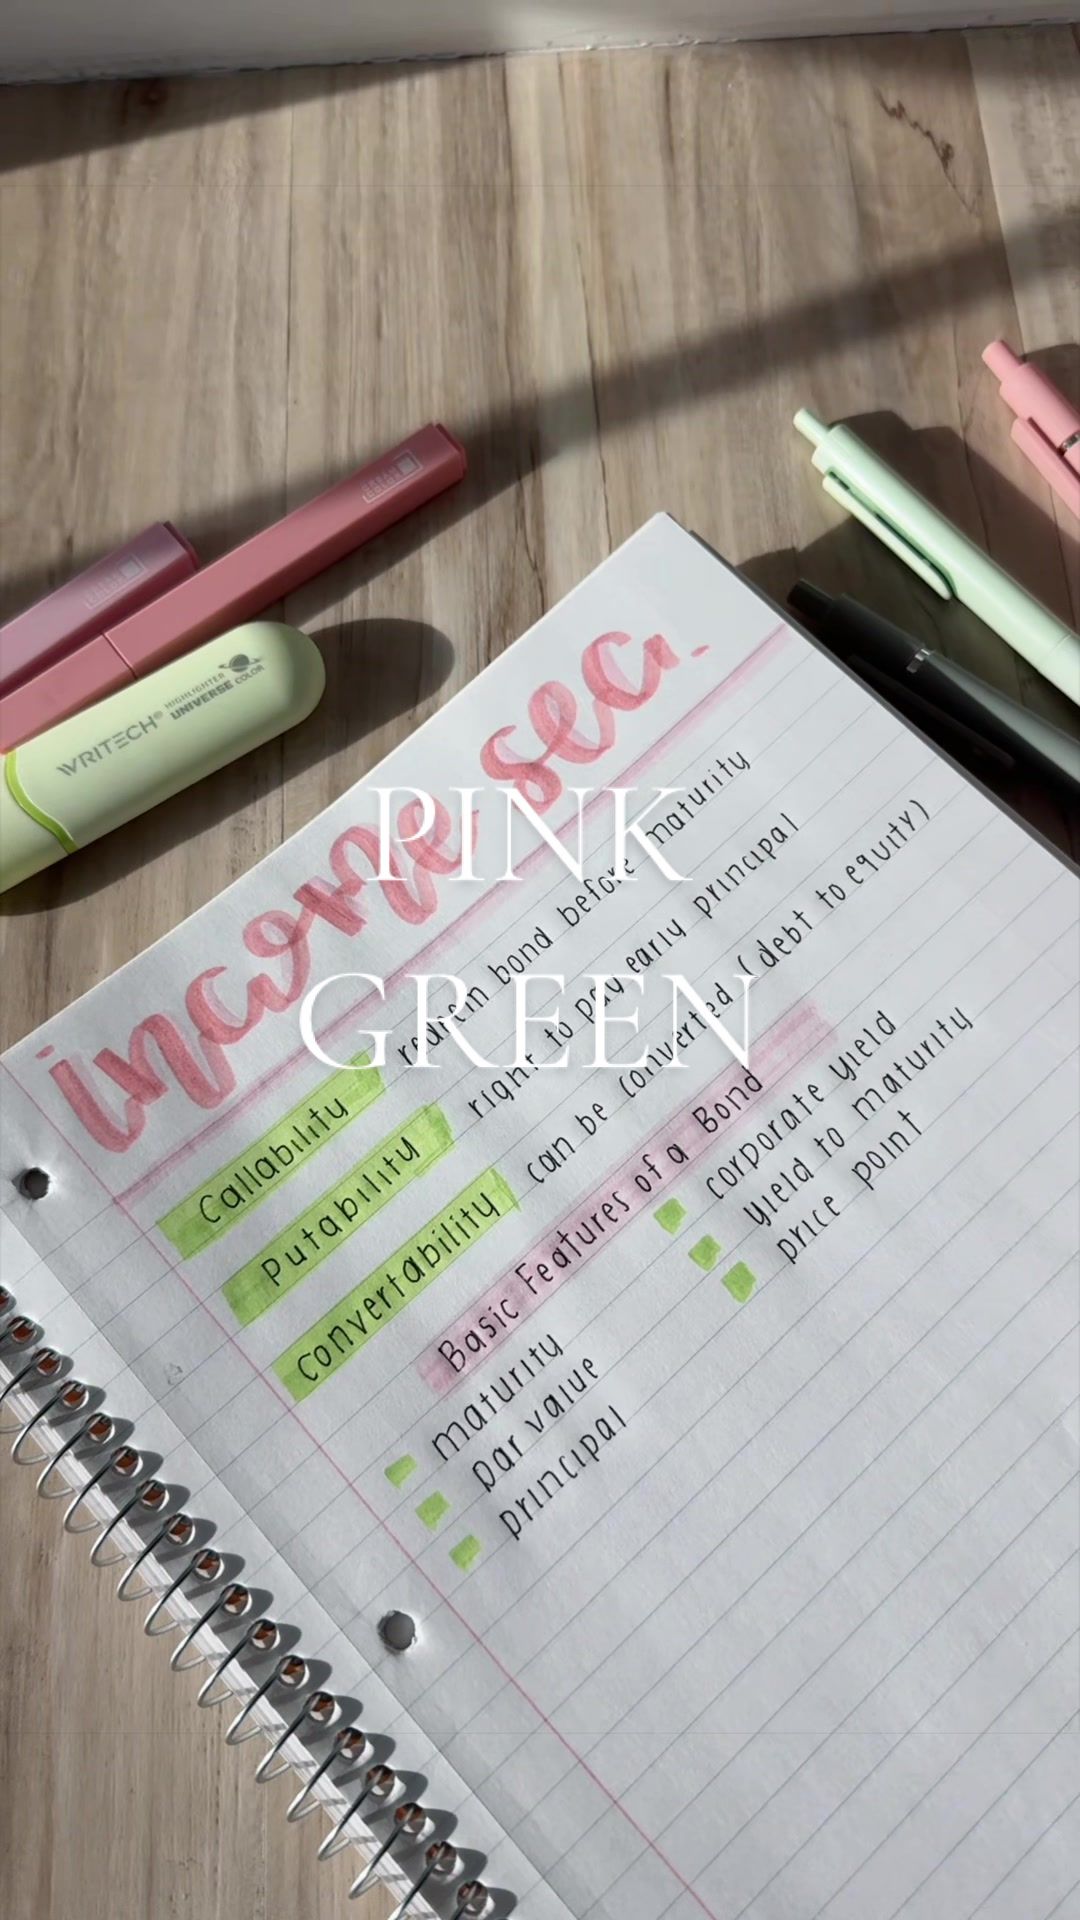 WRITECH® HIGHLIGHTER
UNIVERSE COLOR
income sec.
PINK
GREEN
Callability redeem bond before maturity
Putability right to pay early principal
Convertability can be converted (debt to equity)
Basic Features of a Bond
maturity
par value
principal
corporate yield
yield to maturity
price point